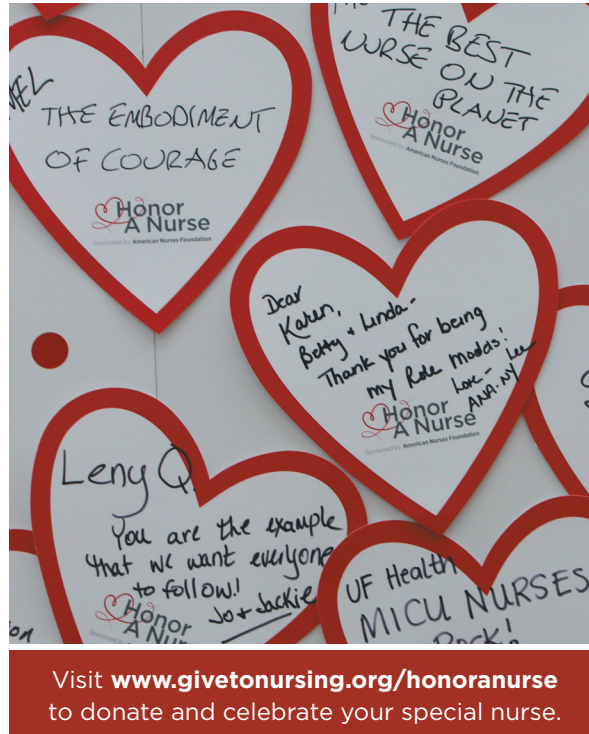 MEL
THE EMBODIMENT
OF COURAGE
Honor
A Nurse
Sponsored by American Nurses Foundation
THE BEST
NURSE ON THE
PLANET
Honor
A Nurse
Sponsored by American Nurses Foundation
Dear
Karen,
Betty + Linda-
Thank you for being
my Role Models!
Love-
ANA-NY Lee
Honor
A Nurse
Sponsored by American Nurses Foundation
Leny Q
You are the example
that we want everyone
to follow!
Jo + Jackie
Honor
A Nur
UF Health
MICU NURSES
Rock!
on
Visit www.givetonursing.org/honoranurse
to donate and celebrate your special nurse.